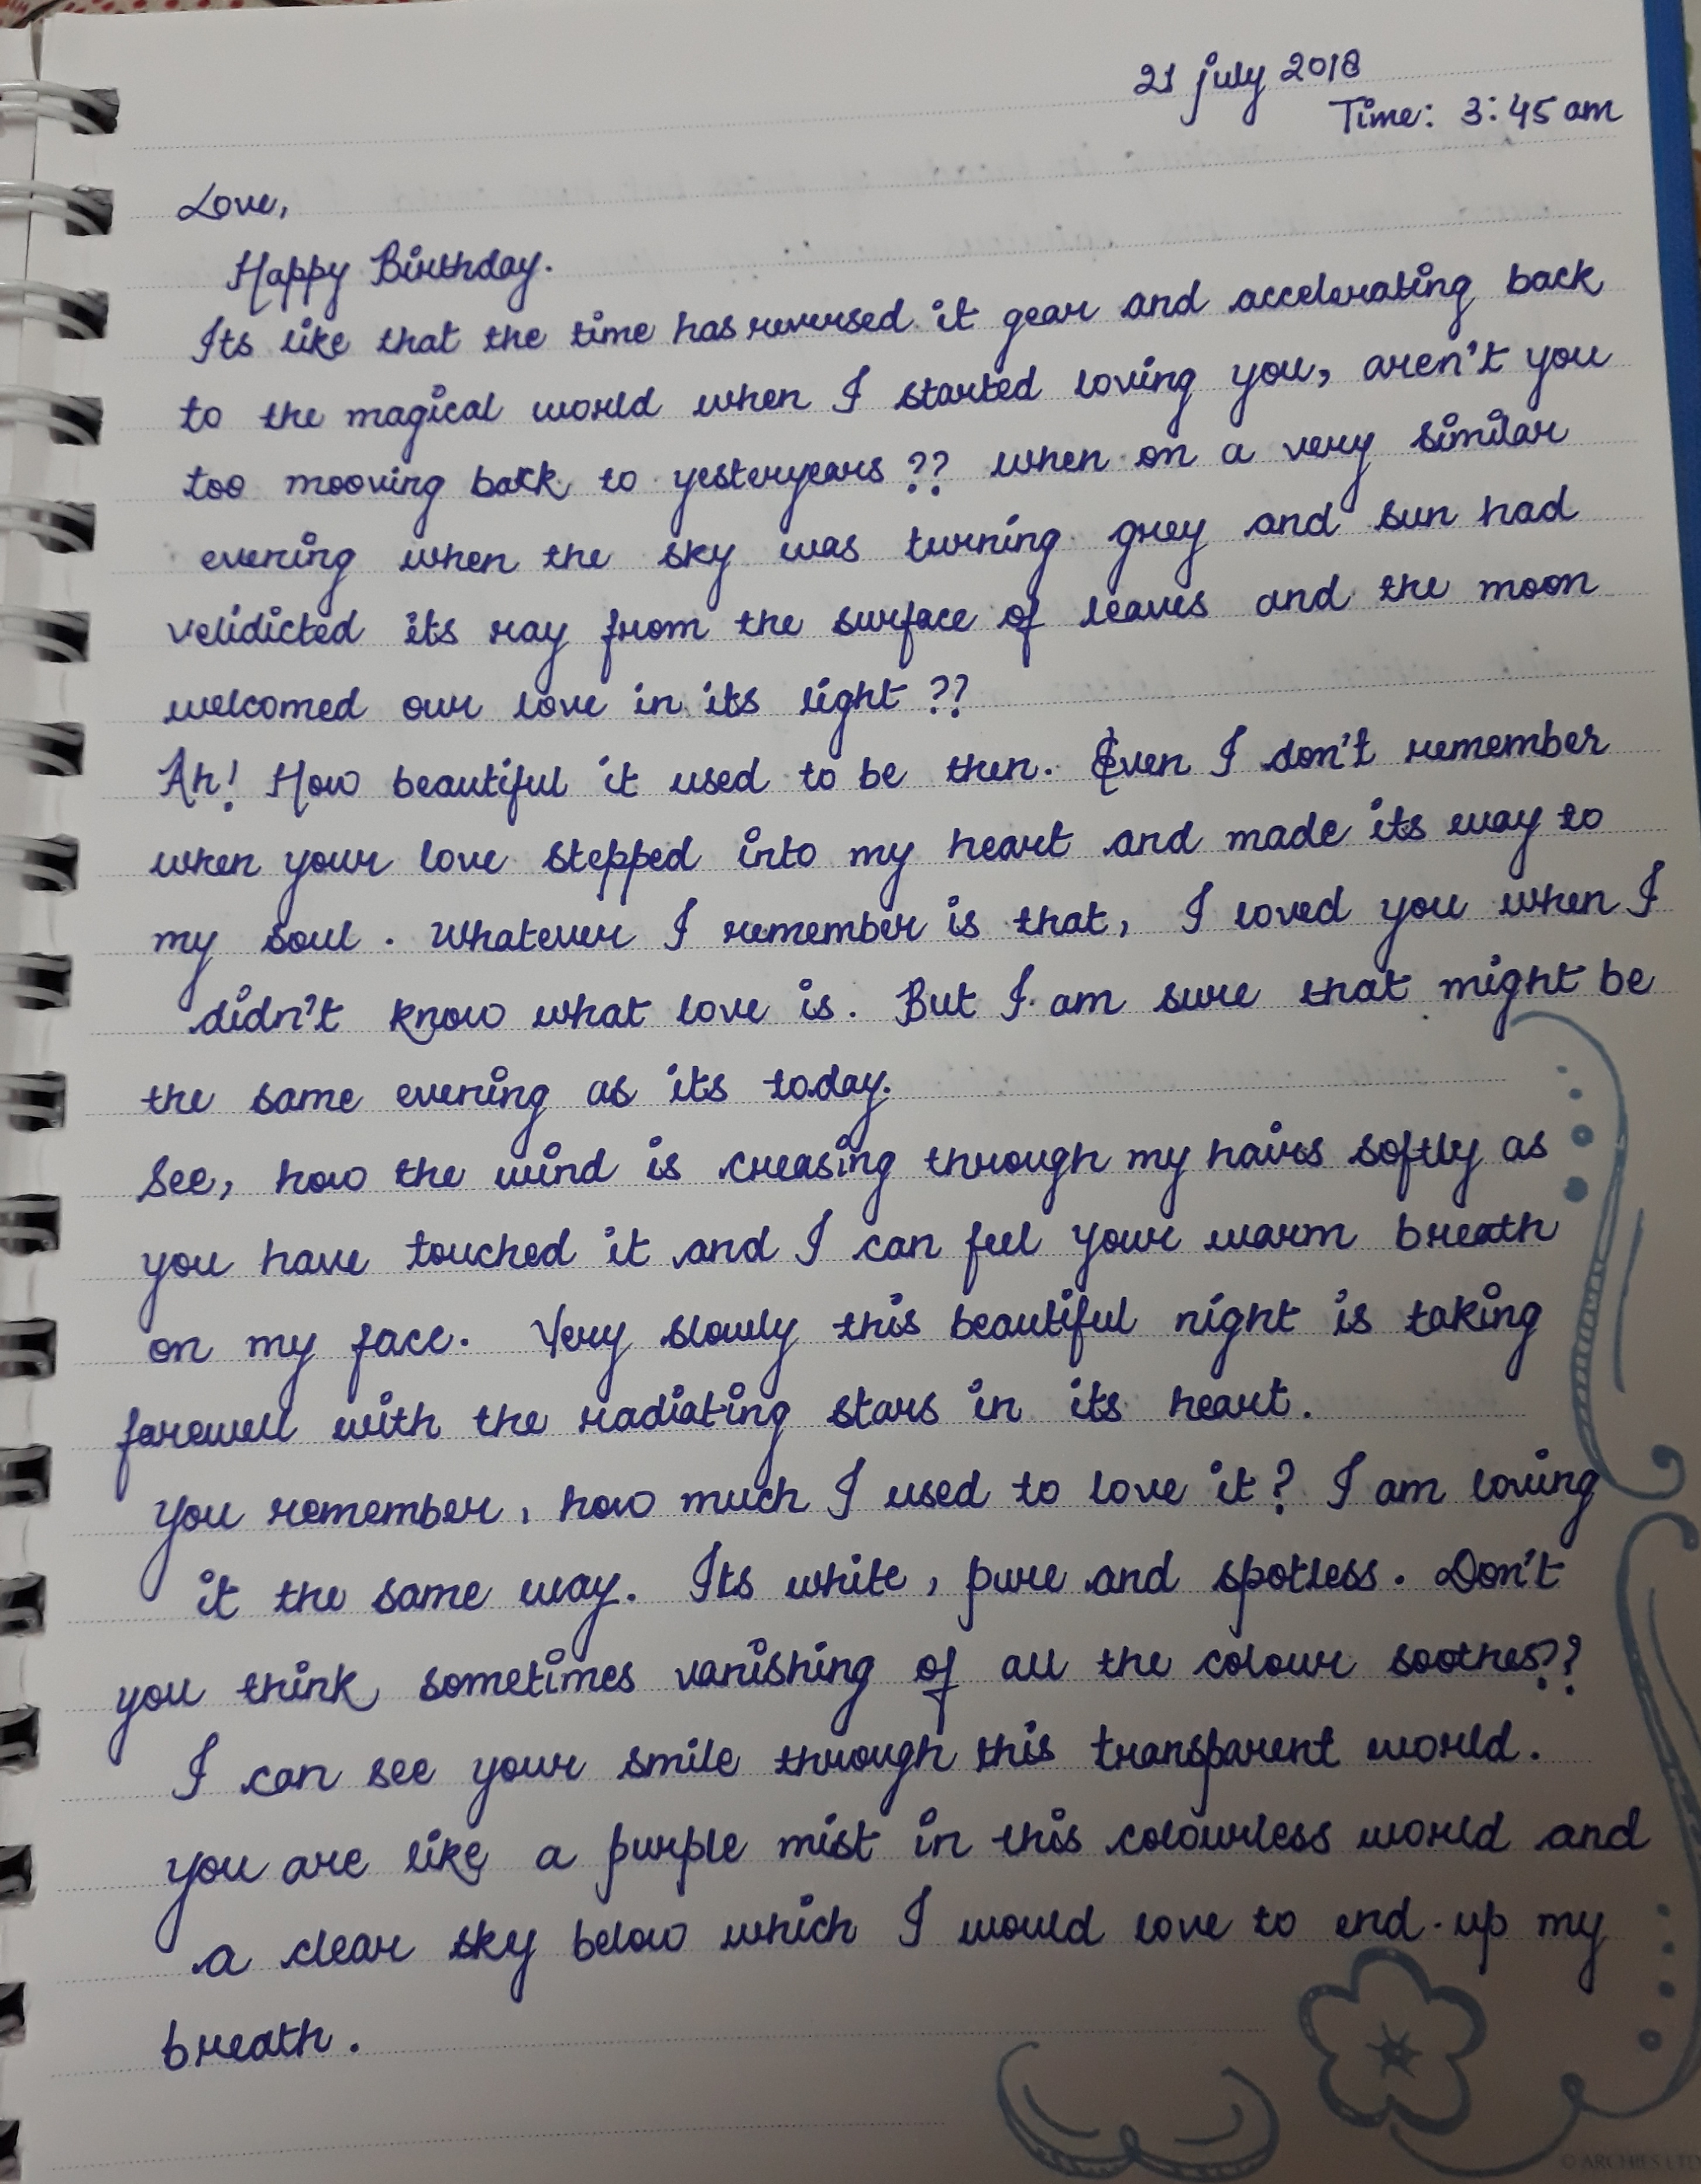 21 july 2018
Time: 3:45 am
Love,
Happy Birthday.
Its like that the time has reversed it gear and accelerating back
to the magical world when I started loving you, aren't you
too mooving back to yesteryears ?? when on a very similar
evening when the sky was turning grey and sun had
velidicted its ray from the surface of leaves and the moon
welcomed our love in its light ??
Ah! How beautiful it used to be then. Even I don't remember
when your love stepped into my heart and made its way to
my soul. Whatever I remember is that, I loved you when I
didn't know what love is. But I am sure that might be
the same evening as its today.
See, how the wind is creasing through my hairs softly as
you have touched it and I can feel your warm breath
on my face. Very slowly this beautiful night is taking
farewell with the radiating stars in its heart.
You remember, how much I used to love it? I am loving
it the same way. Its white, pure and spotless. Don't
you think sometimes vanishing of all the colour soothes??
I can see your smile through this transparent world.
you are like a purple mist in this colourless world and
a clear sky below which I would love to end up my
breath.
© ARCHIES LTD